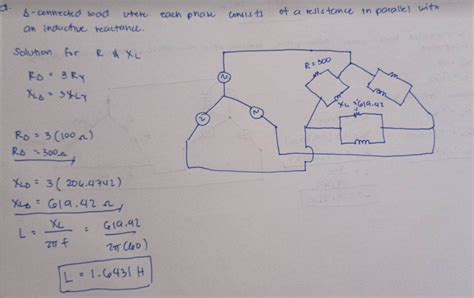 Δ-connected load where each phase consists of a resistance in parallel with
an inductive reactance.
Solution for R & XL
RΔ = 3RY
XLΔ = 3XLY
RΔ = 3(100Ω)
RΔ = 300Ω
XLΔ = 3(206.4742)
XLΔ = 619.42 Ω
L = XL / 2πf = 619.42 / 2π(60)
L = 1.6431 H
R=300
XL = 619.42